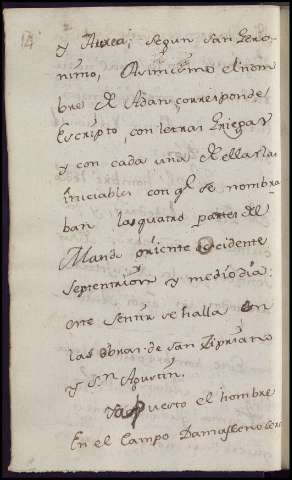 y Aurea; segun san Gero-
nimo, Asimismo el nom
bre de Adan, corresponde
Escripto, con letras Griegas
y con cada una de ellas, las
iniciables con ql se nombra
ban las quatro partes del
Mundo oriente occidente
septentrion y medio dia;
este sentir se halla en
las obras de san Cipriano
y Sn Agustin.
Puesto el hombre
En el Campo Damasceno